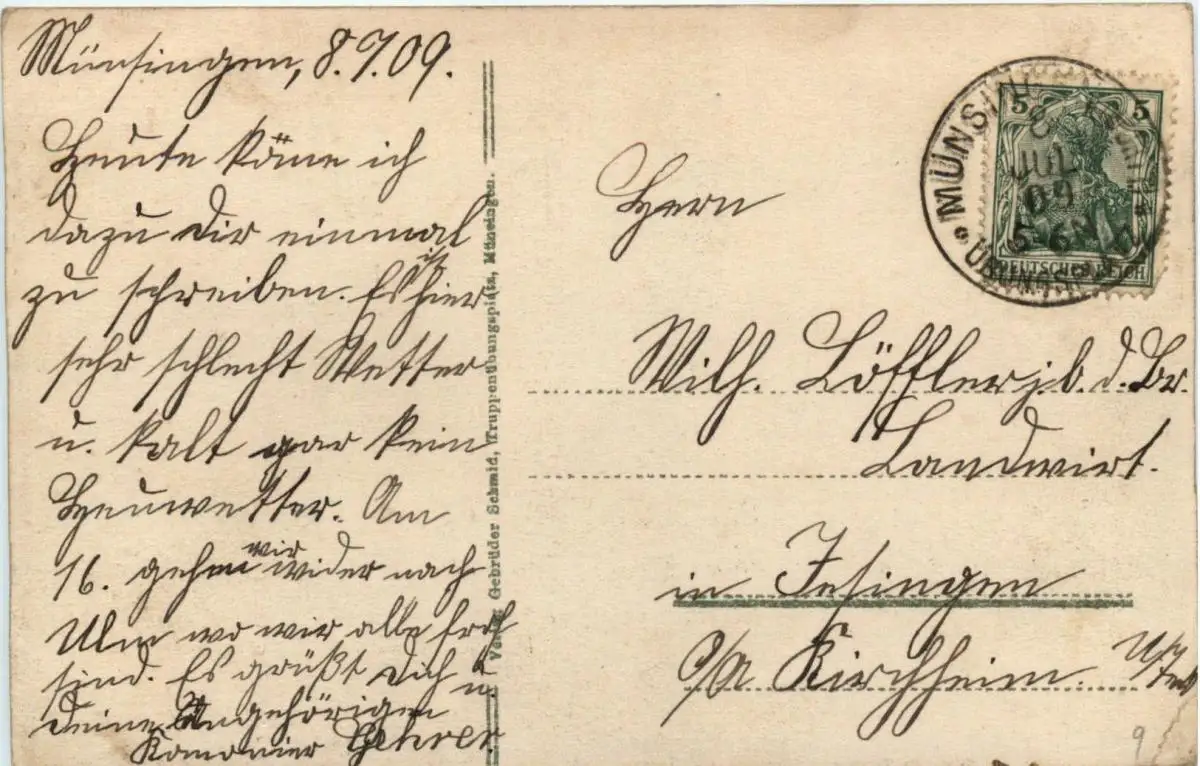 Münsingen, 8.7.09.
Heute käme ich
dazu Dir einmal
zu schreiben. Es ist hier
sehr schlecht Wetter
u. kalt gar kein
Heuwetter. Am
16. gehen wir wider nach
Ulm wo wir alle froh
sind. Es grüßt Dich u.
deine Angehörigen
Kanonier Gehrer
Verlag Gebrüder Schmid, Truppenübungsplatz, Münsingen.
5 5
DEUTSCHES REICH
MÜNSINGEN
8 JUL 09
5-6N
Herrn
Wilh. Löffler j. b. d. Br.
Landwirt.
in Jesingen
O/A Kirchheim U/Teck
9